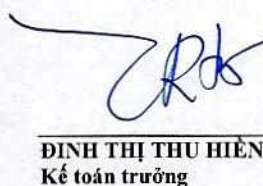 ĐINH THỊ THU HIỀN
Kế toán trưởng